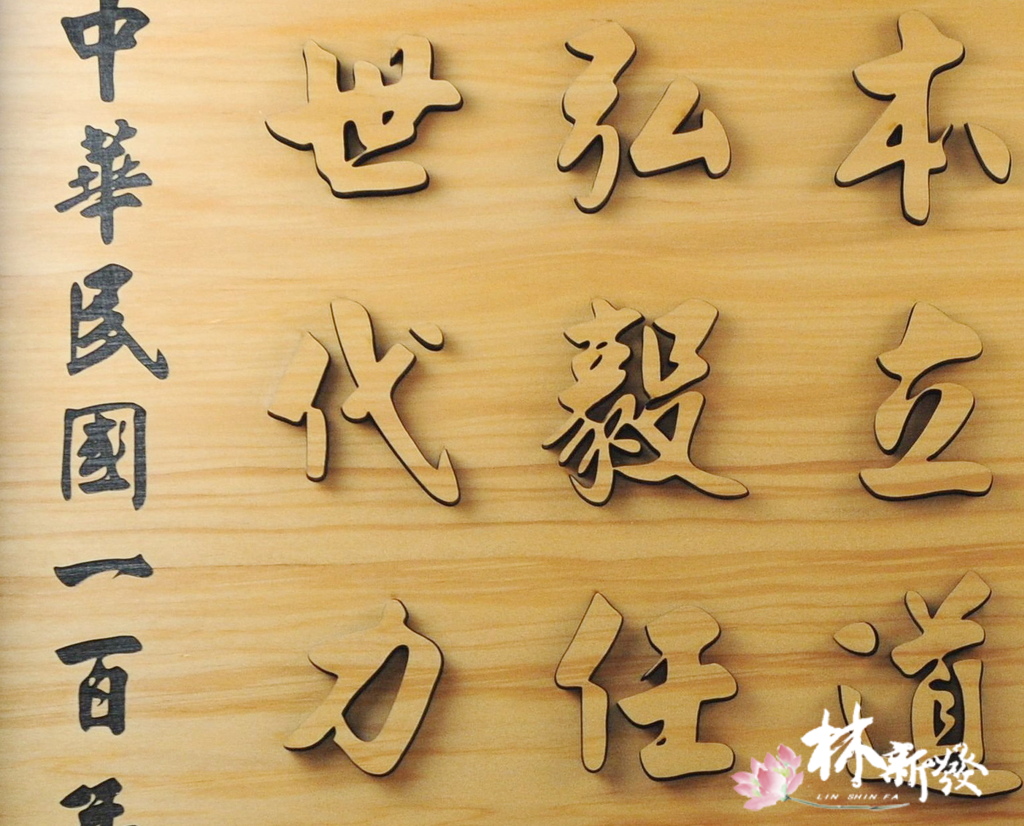 本立道
弘毅任
世代力
中華民國一百
林新發
LIN SHIN FA